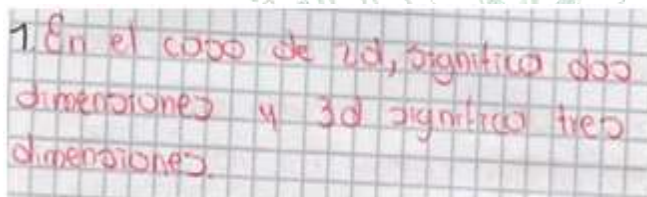 1. En el caso de 2d, significa dos
dimensiones y 3d significa tres
dimensiones.